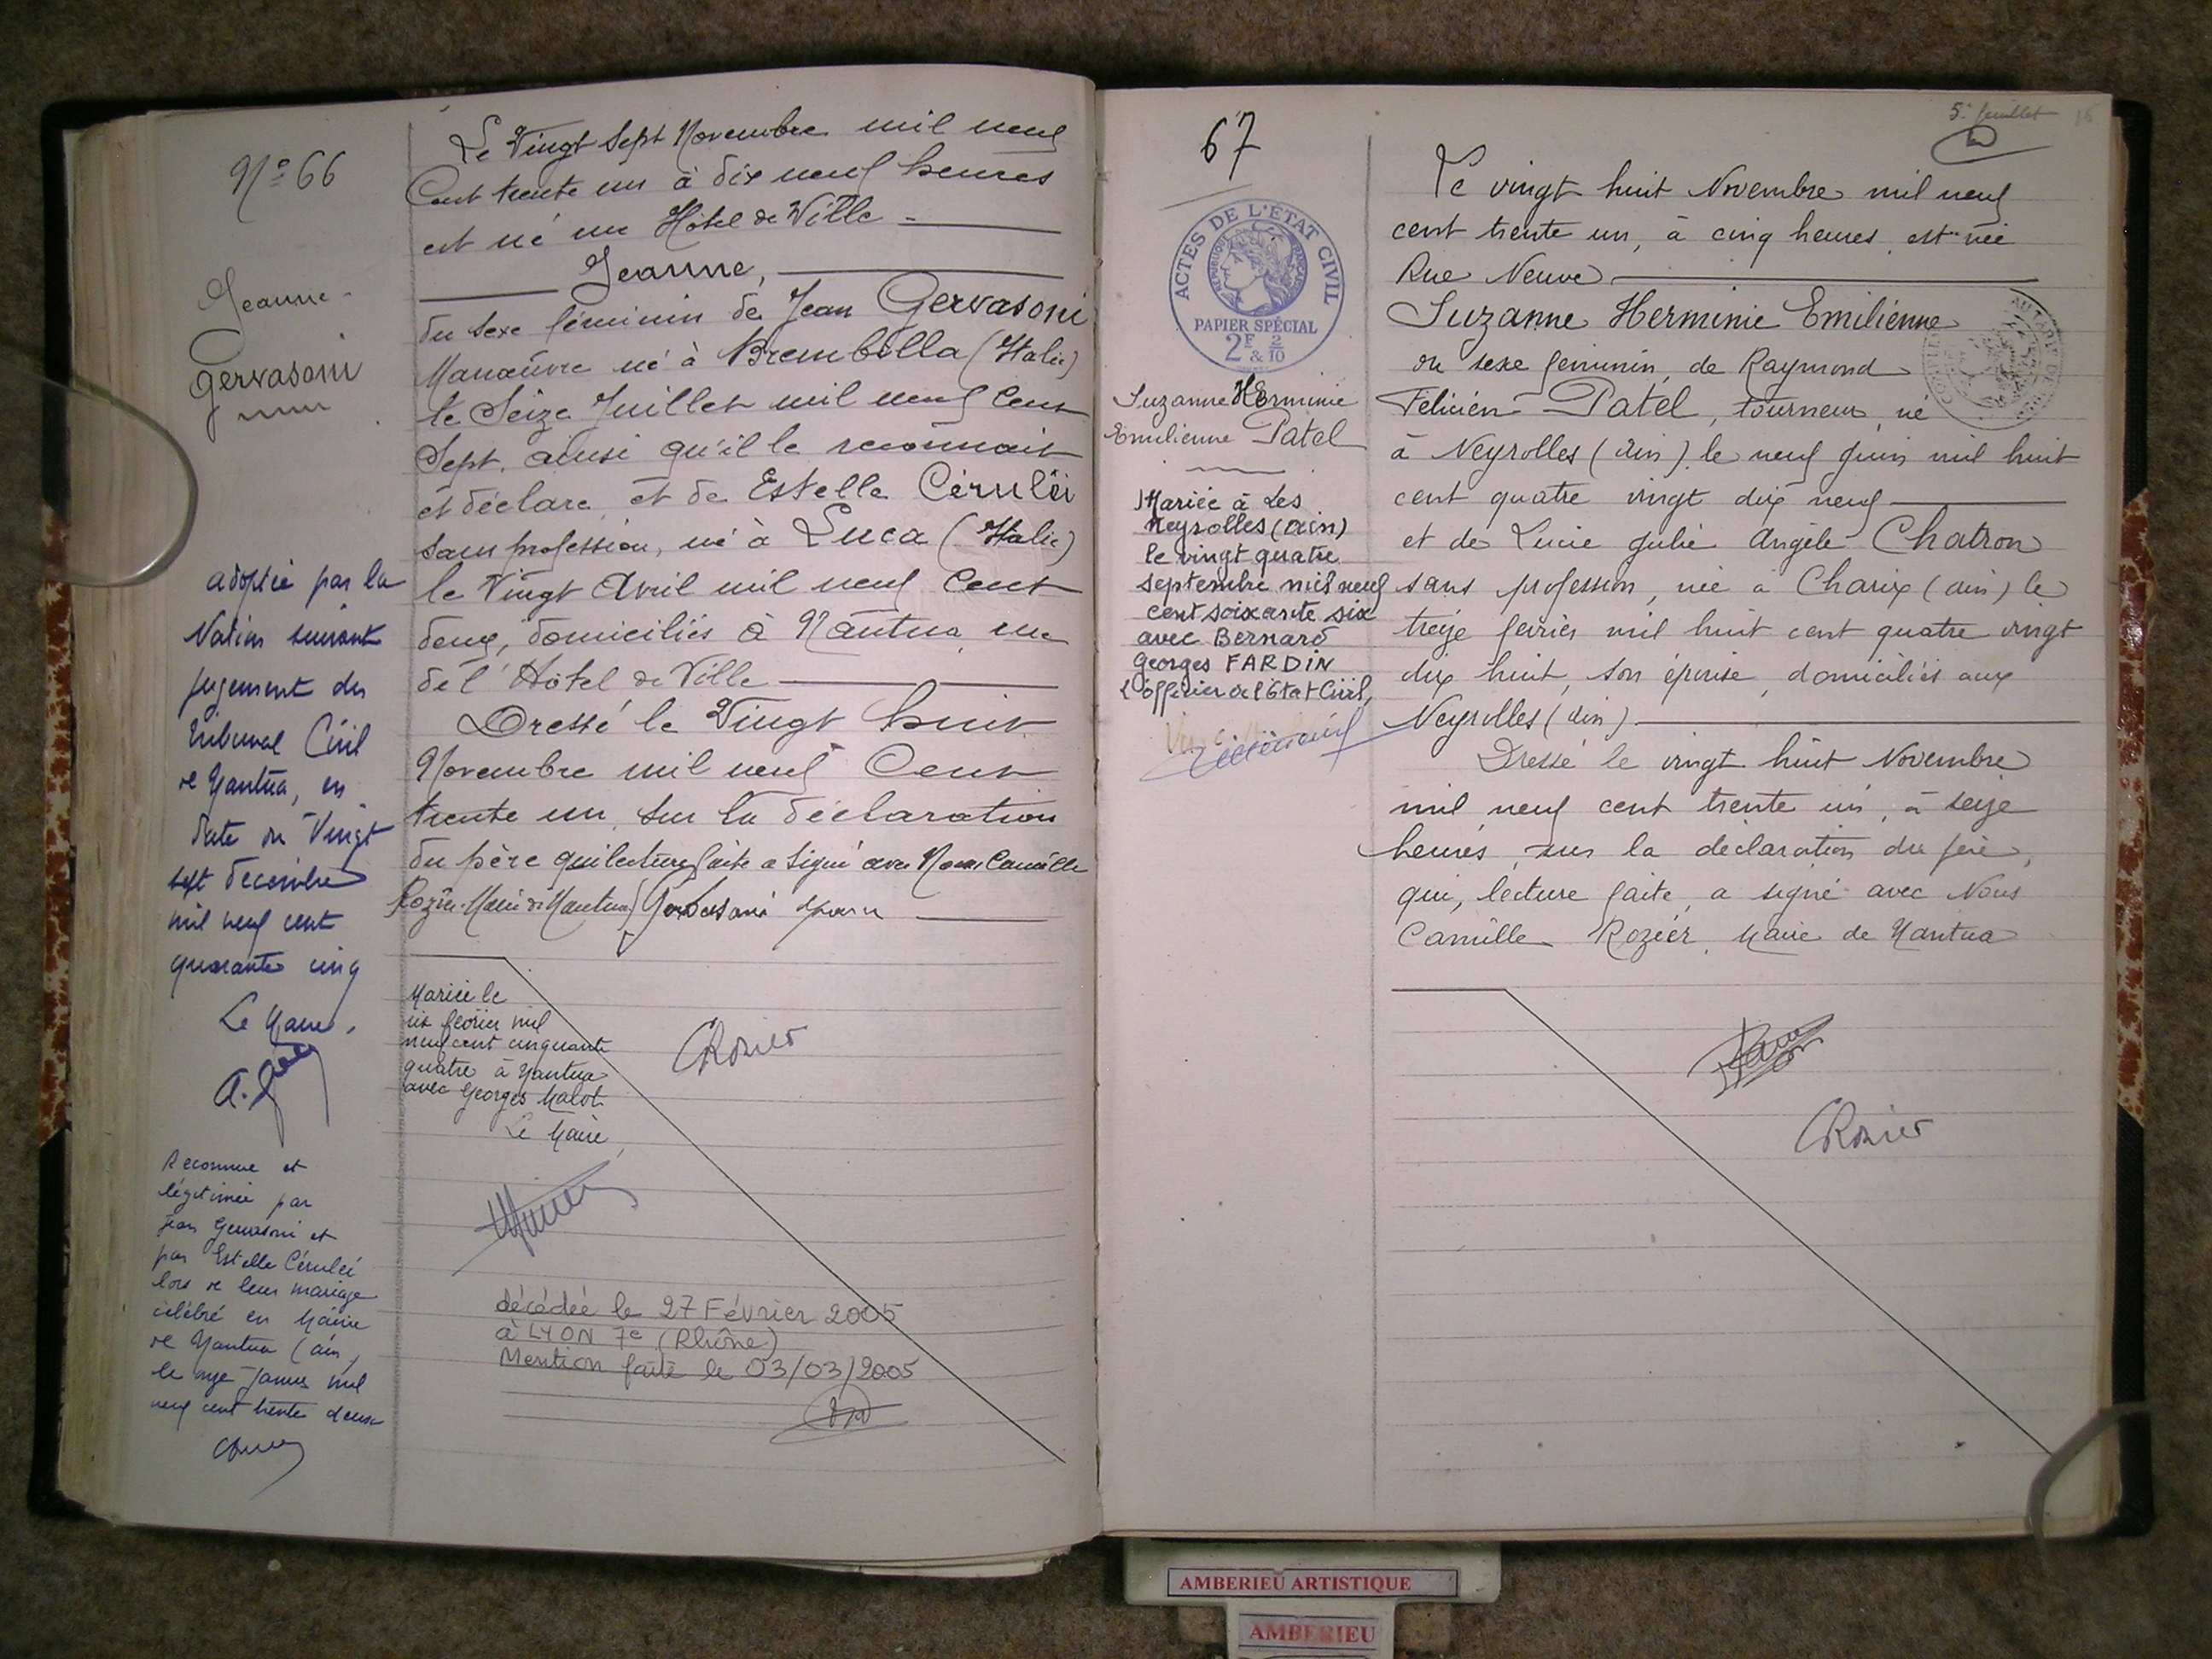 N° 66
Jeanne
Gervasoni
adoptée par la
Nation suivant
jugement du
Tribunal Civil
de Nantua, en
date du Vingt
sept décembre
mil neuf cent
quarante cinq
Le Maire,
Reconnue et
légitimée par
Jean Gervasoni et
par Estelle Céruléi
lors de leur mariage
célébré en Mairie
de Nantua (Ain,
le onze Janvier mil
neuf cent trente deux
Le Vingt Sept Novembre mil neuf
Cent trente un à dix neuf heures
est né rue Hôtel de Ville
Jeanne,
du sexe féminin de Jean Gervasoni
Manœuvre né à Brembilla (Italie)
le Seize Juillet mil neuf Cent
Sept, ainsi qu'il le reconnait
et déclare, et de Estelle Céruléi
sans profession, né à Luca (Italie)
le Vingt Avril mil neuf Cent
deux, domiciliés à Nantua, rue
de l'Hôtel de Ville
Dressé le Vingt huit
Novembre mil neuf Cent
trente un, sur la déclaration
du père qui lecture faite a signé avec Nous Camille
Rozier Maire de Nantua Gervasoni
Mariée le
six février mil
neuf cent cinquante
quatre à Nantua
avec Georges Malot
Le Maire,
CRozier
décédée le 27 Février 2005
à LYON 7e (Rhône)
Mention faite le 03/03/2005
67
ACTES DE L'ÉTAT CIVIL
RÉPUBLIQUE FRANÇAISE
PAPIER SPÉCIAL
2F & 2/10
Suzanne Herminie
Emilienne Patel
Mariée à Les
Neyrolles (Ain)
le vingt quatre
septembre mil neuf
cent soixante six
avec Bernard
Georges FARDIN
L'officier de l'Etat Civil,
5e feuillet
Le vingt huit Novembre mil neuf
cent trente un, à cinq heures est née
Rue Neuve
Suzanne Herminie Emilienne
du sexe féminin, de Raymond
Félicien Patel, tourneur, né
à Neyrolles (Ain) le neuf juin mil huit
cent quatre vingt dix neuf
et de Lucie Julie Angèle Chatron
sans profession, née à Charix (Ain) le
treize février mil huit cent quatre vingt
dix huit, son épouse, domiciliés aux
Neyrolles (Ain)
Dressé le vingt huit Novembre
mil neuf cent trente un, à seize
heures, sur la déclaration du père,
qui, lecture faite, a signé avec Nous
Camille Rozier, Maire de Nantua
CRozier
AMBERIEU ARTISTIQUE
AMBERIEU